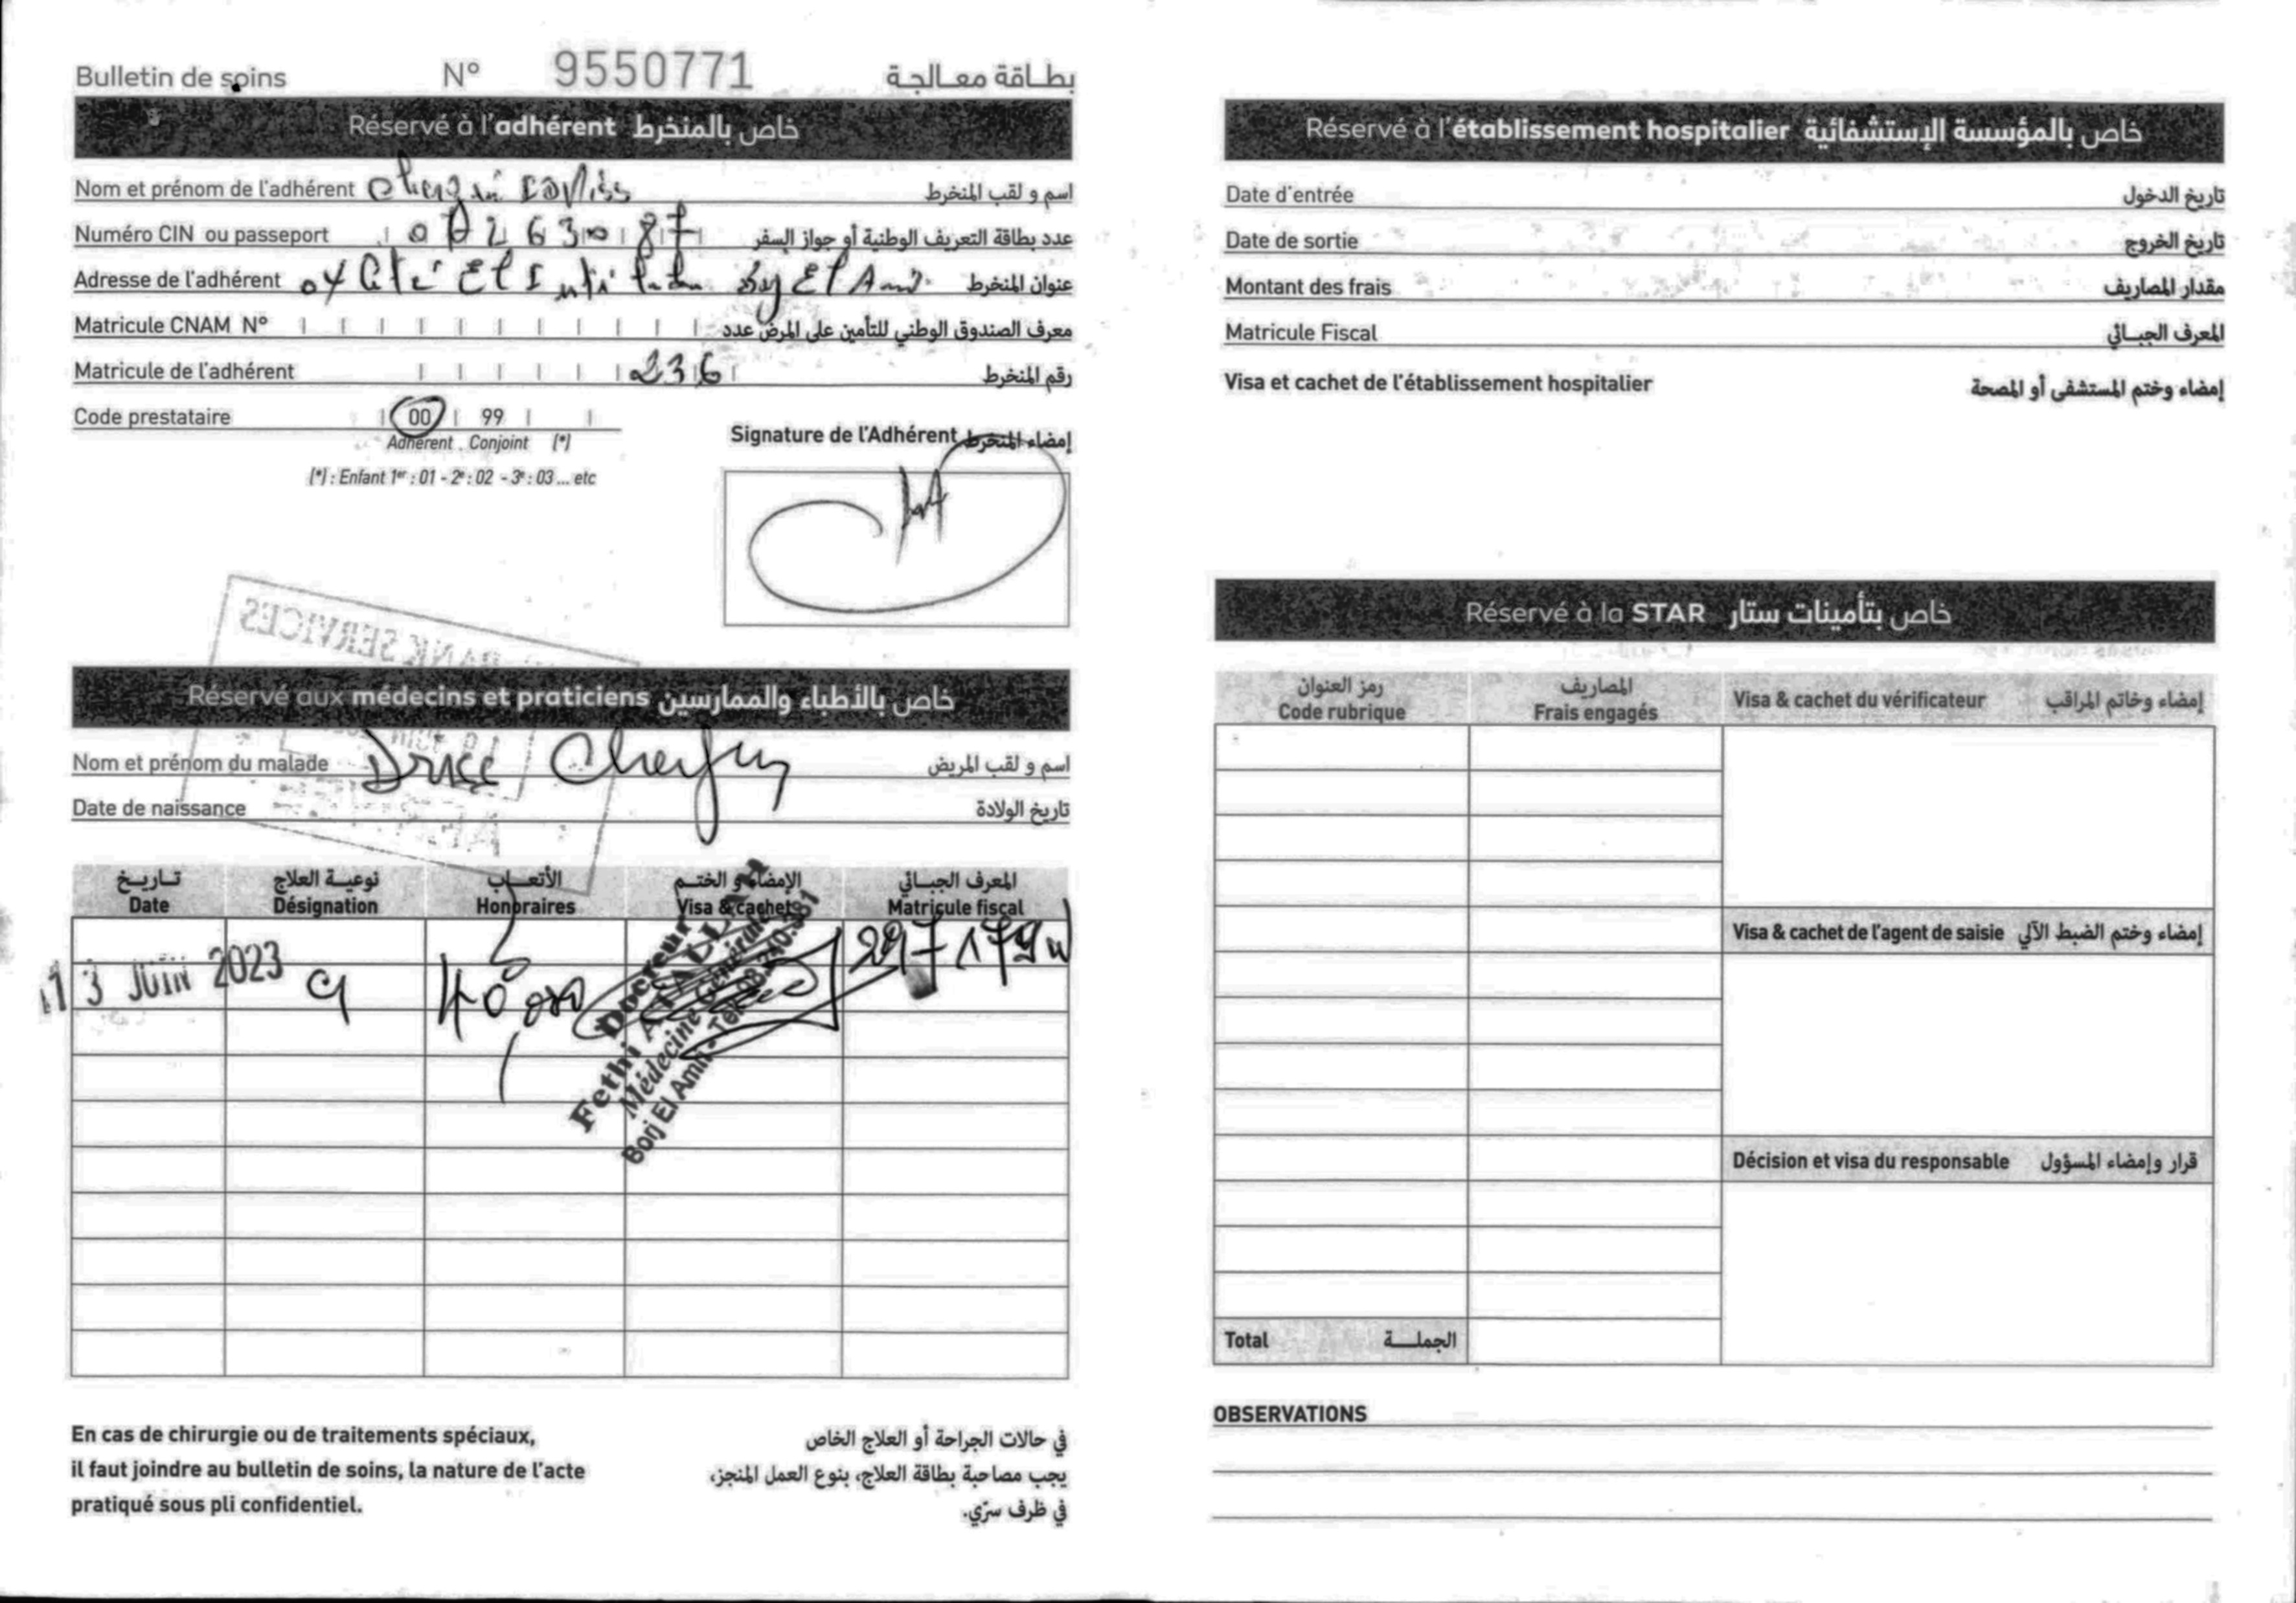 Bulletin de soins N° 9550771 بطاقة معالجة
Réservé à l'adhérent خاص بالمنخرط
Nom et prénom de l'adhérent اسم و لقب المنخرط
Numéro CIN ou passeport عدد بطاقة التعريف الوطنية أو جواز السفر
Adresse de l'adhérent عنوان المنخرط
Matricule CNAM N° معرف الصندوق الوطني للتأمين على المرض عدد
Matricule de l'adhérent 236 رقم المنخرط
Code prestataire 00 99
Adhérent Conjoint (*)
(*) : Enfant 1er : 01 - 2e : 02 - 3e : 03 ... etc
Signature de l'Adhérent إمضاء المنخرط
Réservé aux médecins et praticiens خاص بالأطباء والممارسين
Nom et prénom du malade اسم و لقب المريض
Date de naissance تاريخ الولادة
تاريخ نوعية العلاج الأتعاب الإمضاء و الختم المعرف الجبائي
Date Désignation Honoraires Visa & cachet Matricule fiscal
13 JUIN 2023
Docteur
Fethi
Médecine Générale
Borj El Amri - Tél
En cas de chirurgie ou de traitements spéciaux,
il faut joindre au bulletin de soins, la nature de l'acte
pratiqué sous pli confidentiel.
في حالات الجراحة أو العلاج الخاص
يجب مصاحبة بطاقة العلاج، بنوع العمل المنجز،
في ظرف سرّي.
Réservé à l'établissement hospitalier خاص بالمؤسسة الإستشفائية
Date d'entrée تاريخ الدخول
Date de sortie تاريخ الخروج
Montant des frais مقدار المصاريف
Matricule Fiscal المعرف الجبائي
Visa et cachet de l'établissement hospitalier إمضاء وختم المستشفى أو المصحة
Réservé à la STAR خاص بتأمينات ستار
رمز العنوان المصاريف
Code rubrique Frais engagés Visa & cachet du vérificateur إمضاء وخاتم المراقب
Visa & cachet de l'agent de saisie إمضاء وختم الضبط الآلي
Décision et visa du responsable قرار وإمضاء المسؤول
Total الجملة
OBSERVATIONS